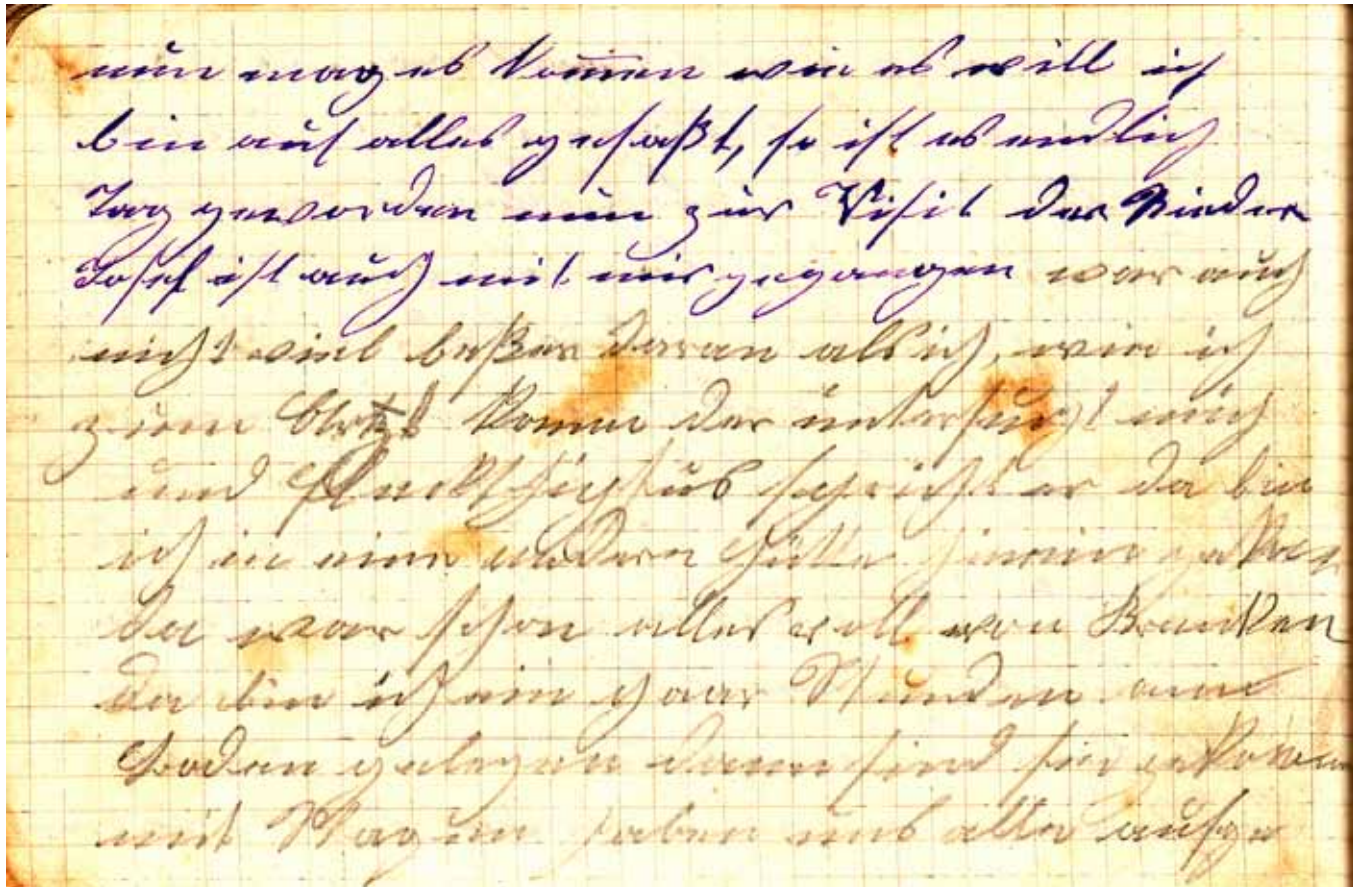 nun mag es kom̄en wie es will ich
bin auf alles gefaßt, so ist es endlich
Tag geworden nun zur Visit der Rieder
Josef ist auch mit mir gegangen war auch
nicht viel beßer daran als ich, wie ich
zum Arzt komm der untersucht mich
und spricht er da bin
ich in eine andere Hütte hinein gekom
da war schon alles voll von Kranken
da bin ich ein paar Stunden am
Boden gelegen dann sind sie gekomm
mit Wagen haben uns alle aufge